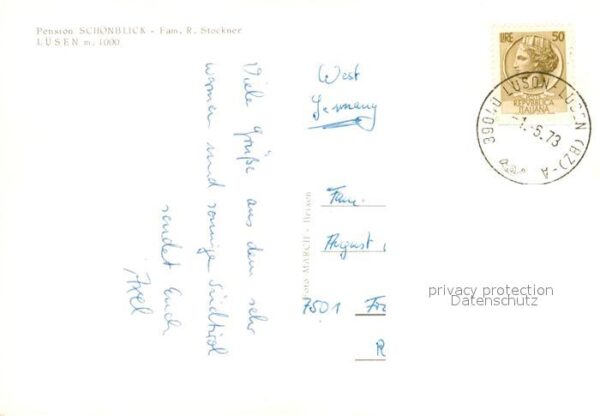 Pension SCHÖNBLICK - Fam. R. Stockner
LÜSEN m. 1000
Viele Grüße aus dem sehr
warmen und sonnige Südtirol
sendet Euch
Axel
Foto MARCH - Brixen
West
Germany
Fam.
August
7501
R
LIRE 50
REPVBBLICA
ITALIANA
39040 LUSON-LÜSEN (BZ)-A
-1.-6.73
privacy protection
Datenschutz